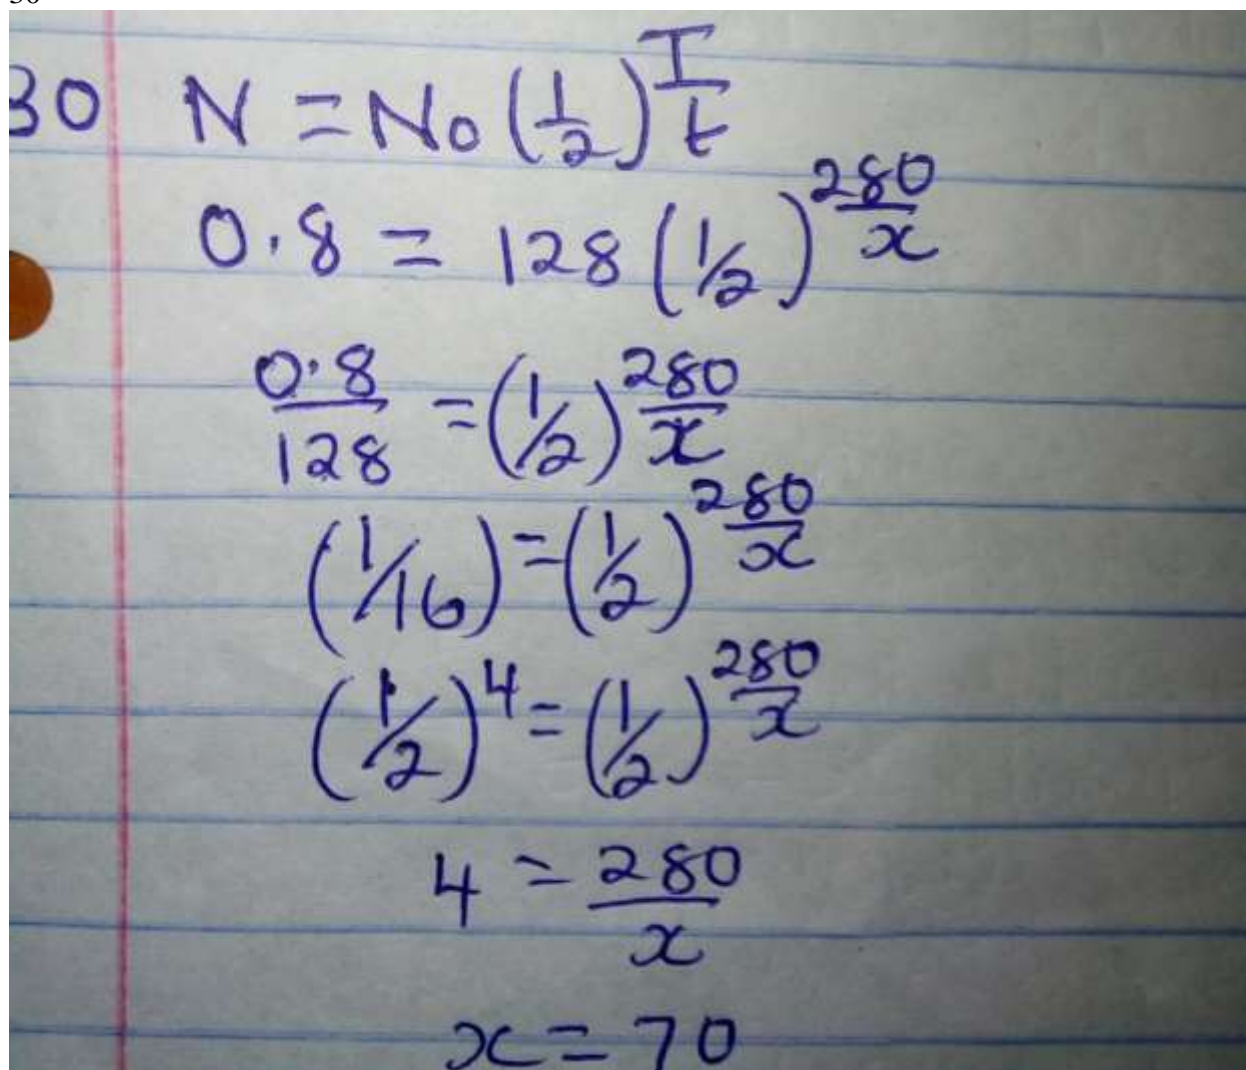 30 N = No (1/2)^T/t
0.8 = 128 (1/2)^280/x
0.8/128 = (1/2)^280/x
(1/16) = (1/2)^280/x
(1/2)^4 = (1/2)^280/x
4 = 280/x
x = 70